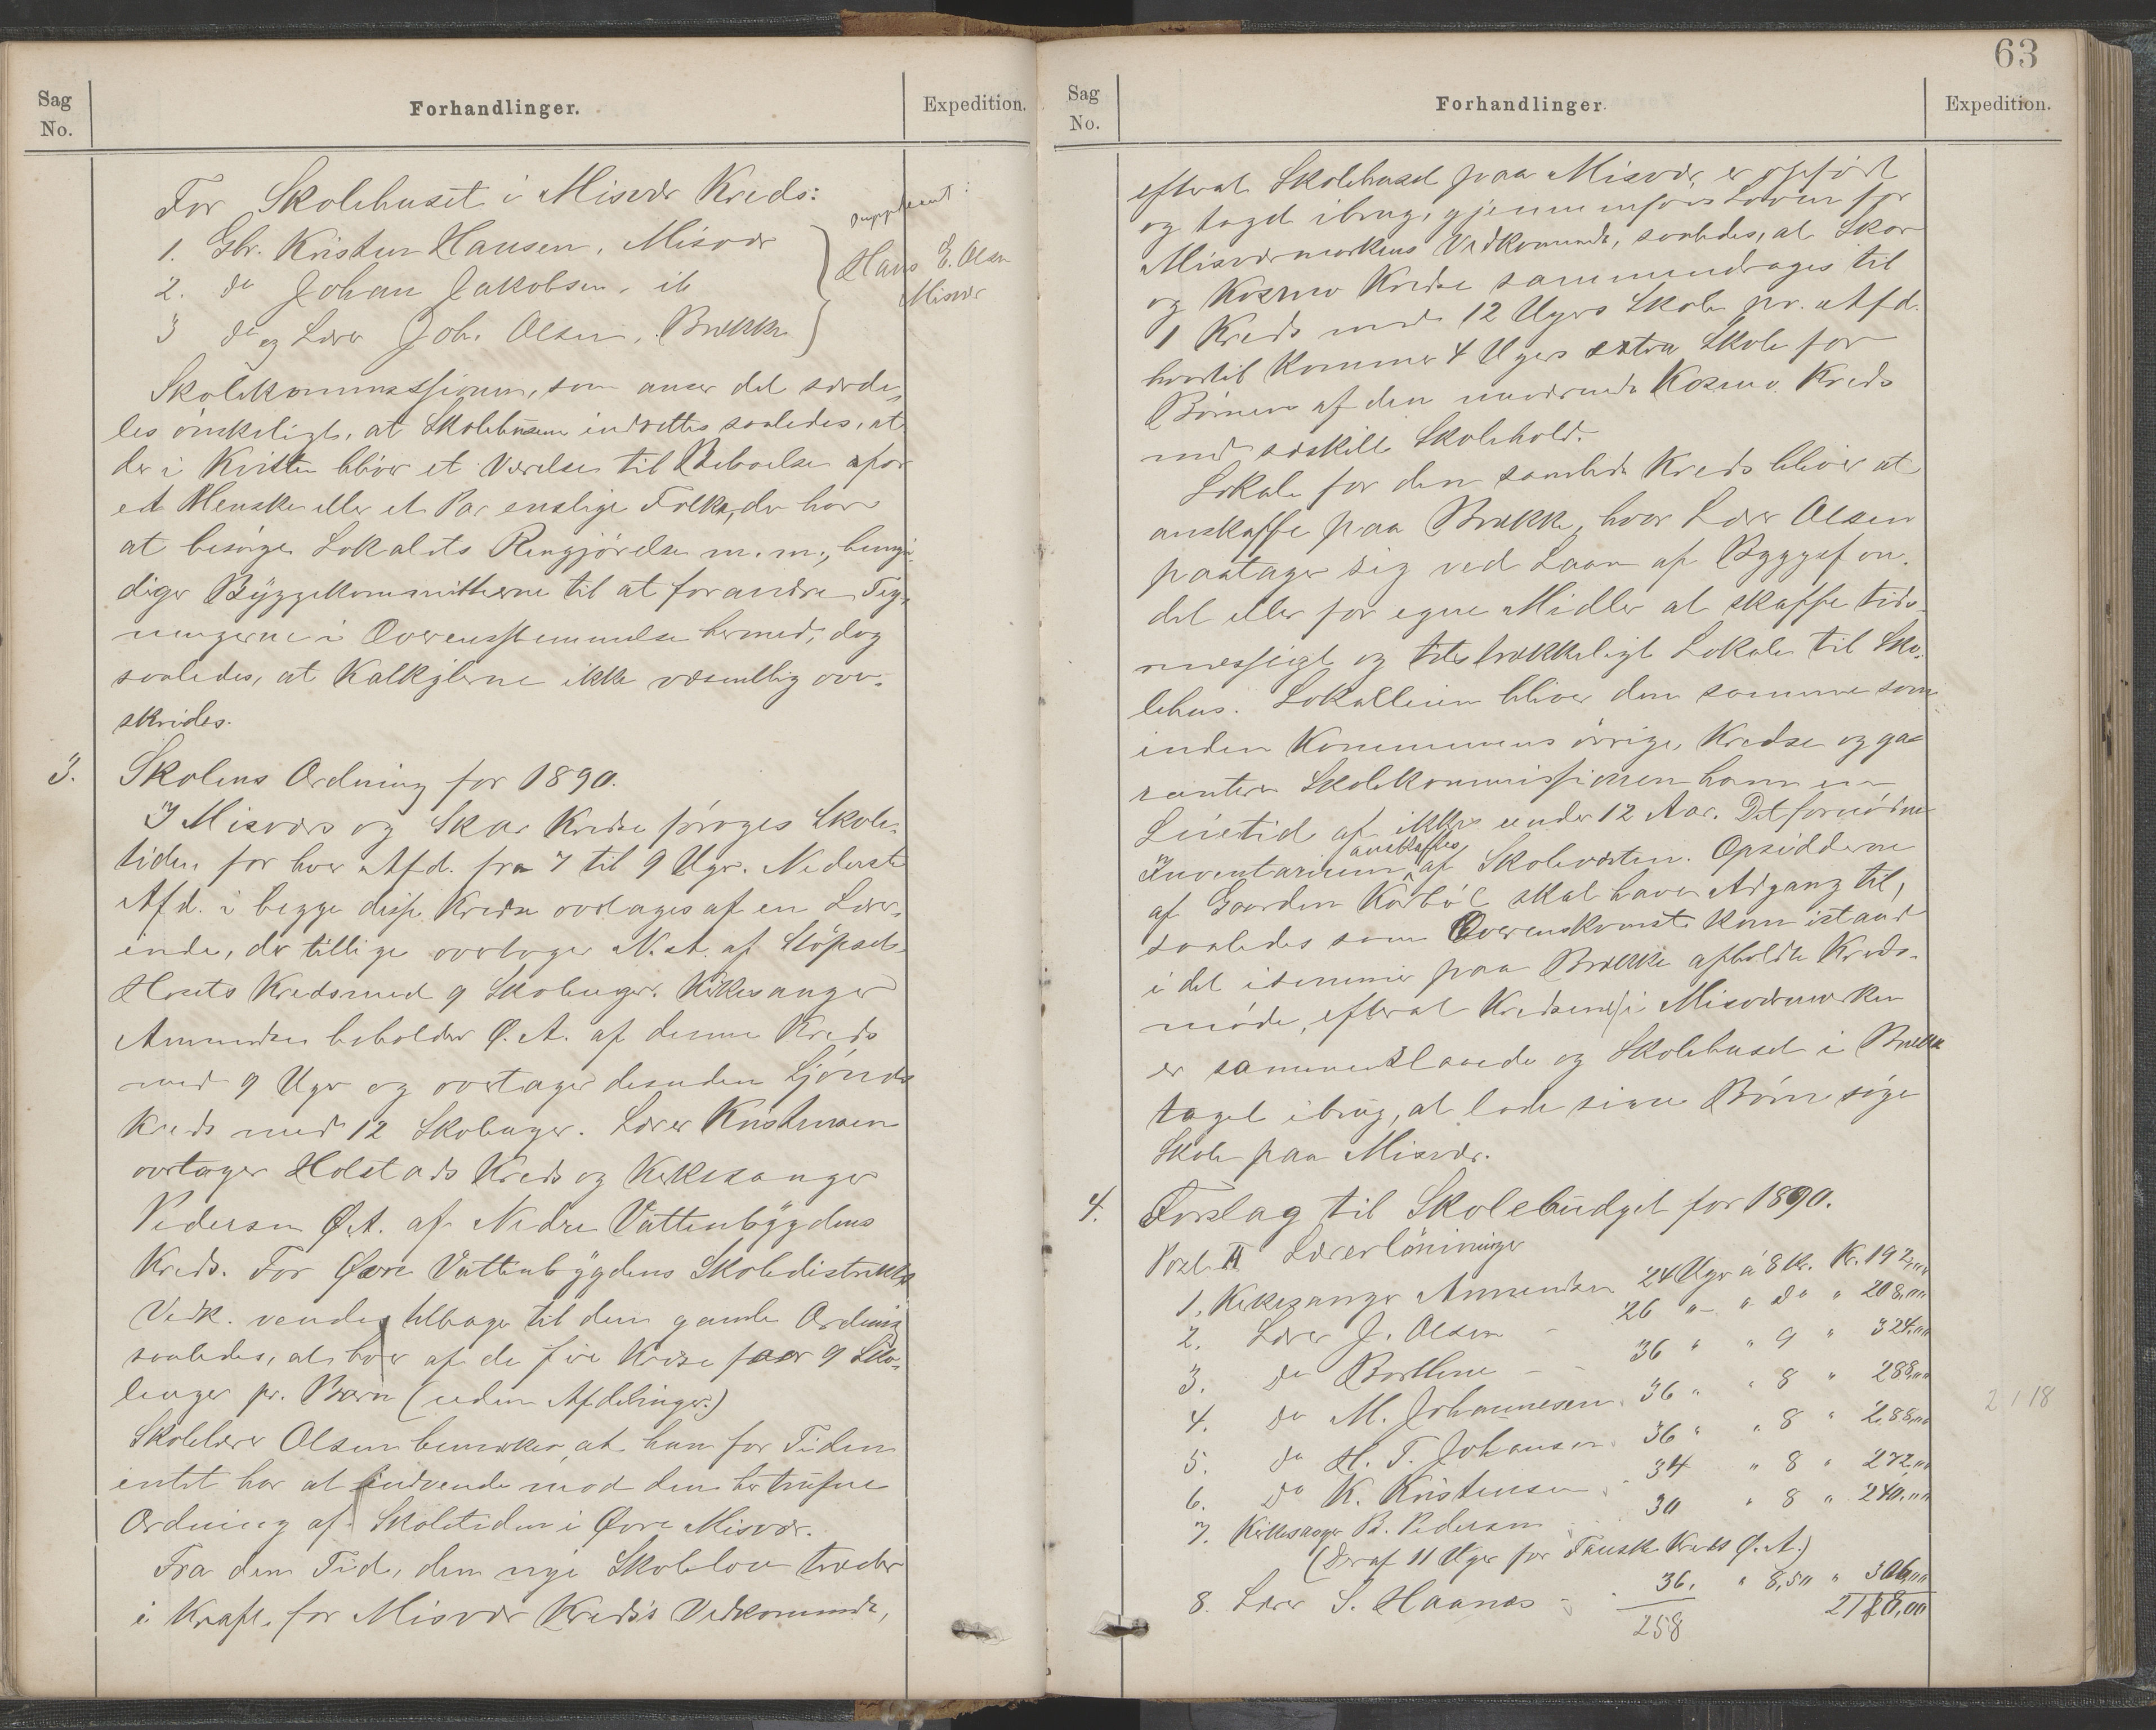 Sag
No.
Forhandlinger.
Expedition.
For Skolehuset i Misvær Kreds:
Suppleant:
1. Gbr. Kristen Hansen, Misvær
2. do Johan Jakobsen, ib
Hans E. Olsen
Misvær
3 do og Lærer Joh. Olsen, Brække
Skolekommissionen, som anser det særde-
les ønskeligt, at Skolehusene indrettes saaledes, at
der i Kvisten bliver et Værelse til Beboelse for
et Menske eller et Par enslige Folk, der har
at besørge Lokalets Rengjørelse m. m., bemyn-
diger Byggekommitteerne til at forandre Teg-
ningerne i Overensstemmelse hermed, dog
saaledes, at Kalkylerne ikke væsentlig over-
skrides.
3. Skolens Ordning for 1890.
I Misværs og Skar Kredse forøges Skole-
tiden for hver Afd. fra 7 til 9 Uger. Nederste
Afd. i begge disse Kredse overtages af en Lærer-
inde, der tillige overtager N. A. af Støpset-
Hosets Kreds med 9 Skoleuger. Kirkesanger
Amundsen beholder Ø. A. af denne Kreds
med 9 Uger og overtager desuden Ljønes
Kreds med 12 Skoleuger. Lærer Kristensen
overtager Holstads Kreds og Kirkesanger
Pedersen Ø. A. af Nedre Vattenbygdens
Kreds. For Øvre Vattenbygdens Skoledistrikts
Vedk. vendes tilbage til den gamle Ordning
saaledes, at hver af de fire Kredse faar 9 Sko-
leuger pr. Barn (uden Afdelinger.)
Skolelærer Olsen bemærker, at han for Tiden
intet har at indvende mod den her trufne
Ordning af Skoletiden i Øvre Misvær.
Fra den Tid, den nye Skolelov træder
i Kraft for Misvær Kreds's Vedkommende,
63
Sag
No.
Forhandlinger
Expedition.
efterat Skolehuset paa Misvær er opført
og taget ibrug, gjennemføres Loven for
Misværmarkens Vedkommende, saaledes, at Skar
og Kosmo Kredse sammendrages til
1 Kreds med 12 Ugers Skole pr. Afd.
hvortil kommer 4 Ugers extra Skole for
Børnene af den nuværende Kosmo Kreds
med særskilt Skolehold.
Lokale for den samlede Kreds bliver at
anskaffe paa Brække, hvor Lærer Olsen
paatager sig ved Laan af Byggefon-
det eller for egne Midler at skaffe tids-
mæssigt og tilstrækkeligt Lokale til Sko-
lehus. Lokalleien bliver den samme som
inden Kommunens øvrige Kredse og ga-
ranterer Skolekommissionen ham en
Leietid af ikke under 12 Aar. Det fornødne
Inventarium anskaffes af Skolekassen. Opsidderne
af Gaarden Karbøl skal have Adgang til,
saaledes som Overenskomst kom istand
i det isommer paa Brække afholdte Kreds-
møde, efterat Kredsene i Misværmarken
er sammenslaaede og Skolehuset i Brække
taget ibrug, at lade sine Børn søge
Skole paa Misvær.
4. Forslag til Skolebudget for 1890.
Post II Lærerlønninger
1. Kirkesanger Amundsen 24 Uger á 8 Kr. Kr. 192,00
2. Lærer J. Olsen - 26 " " do " 208,00
3. do Bortline - 36 " " 9 " 324,00
4. do M. Johannesen 36 " " 8 " 288,00
5. do H. T. Johansen 36 " " 8 " 288,00
6. do K. Kristensen 34 " 8 " 272,00
7. Kirkesanger B. Pedersen 30 " 8 " 240,00
(Deraf 11 Uger for Fauske Kreds Ø. A.)
8. Lærer S. Haanæs - 36. " 8,50 " 306,00
258 2118,00
2118